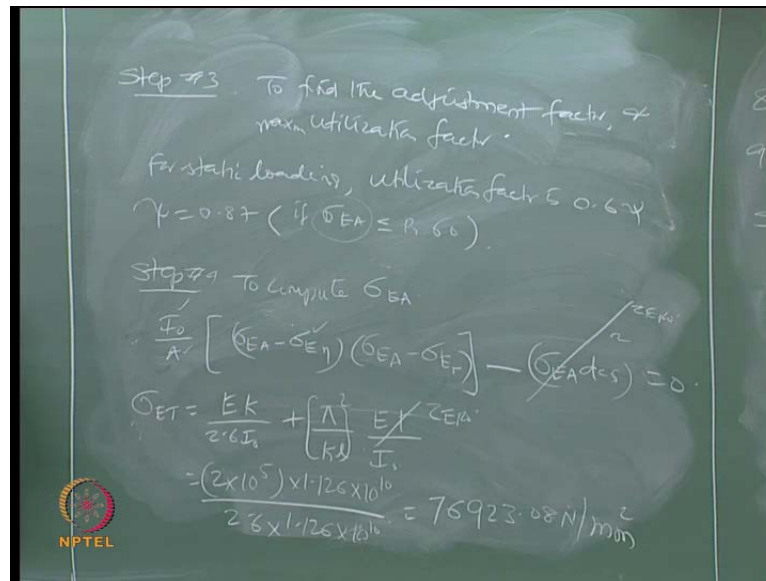 Step #3 To find the adjustment factor, or
maxm utilization factor.
For static loading, utilization factor is 0.6ψ
ψ = 0.87 ( if σEA ≤ P1 σ0 ).
Step #4 To compute σEA
I0/A [ (σEA - σEη) (σEA - σEr) ] - (σEA dcs)² = 0. ZERO.
σET = EK/2.6I0 + (π/kl)² EI/I0 ZERO.
= (2×10⁵) × 1.126×10¹⁰ / 2.6 × 1.126×10¹⁰ = 76923.08 N/mm²
8
9
S
NPTEL